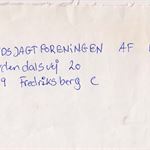 DSJAGTFORENINGEN AF
dendalsvej 20
9 Fredriksberg C